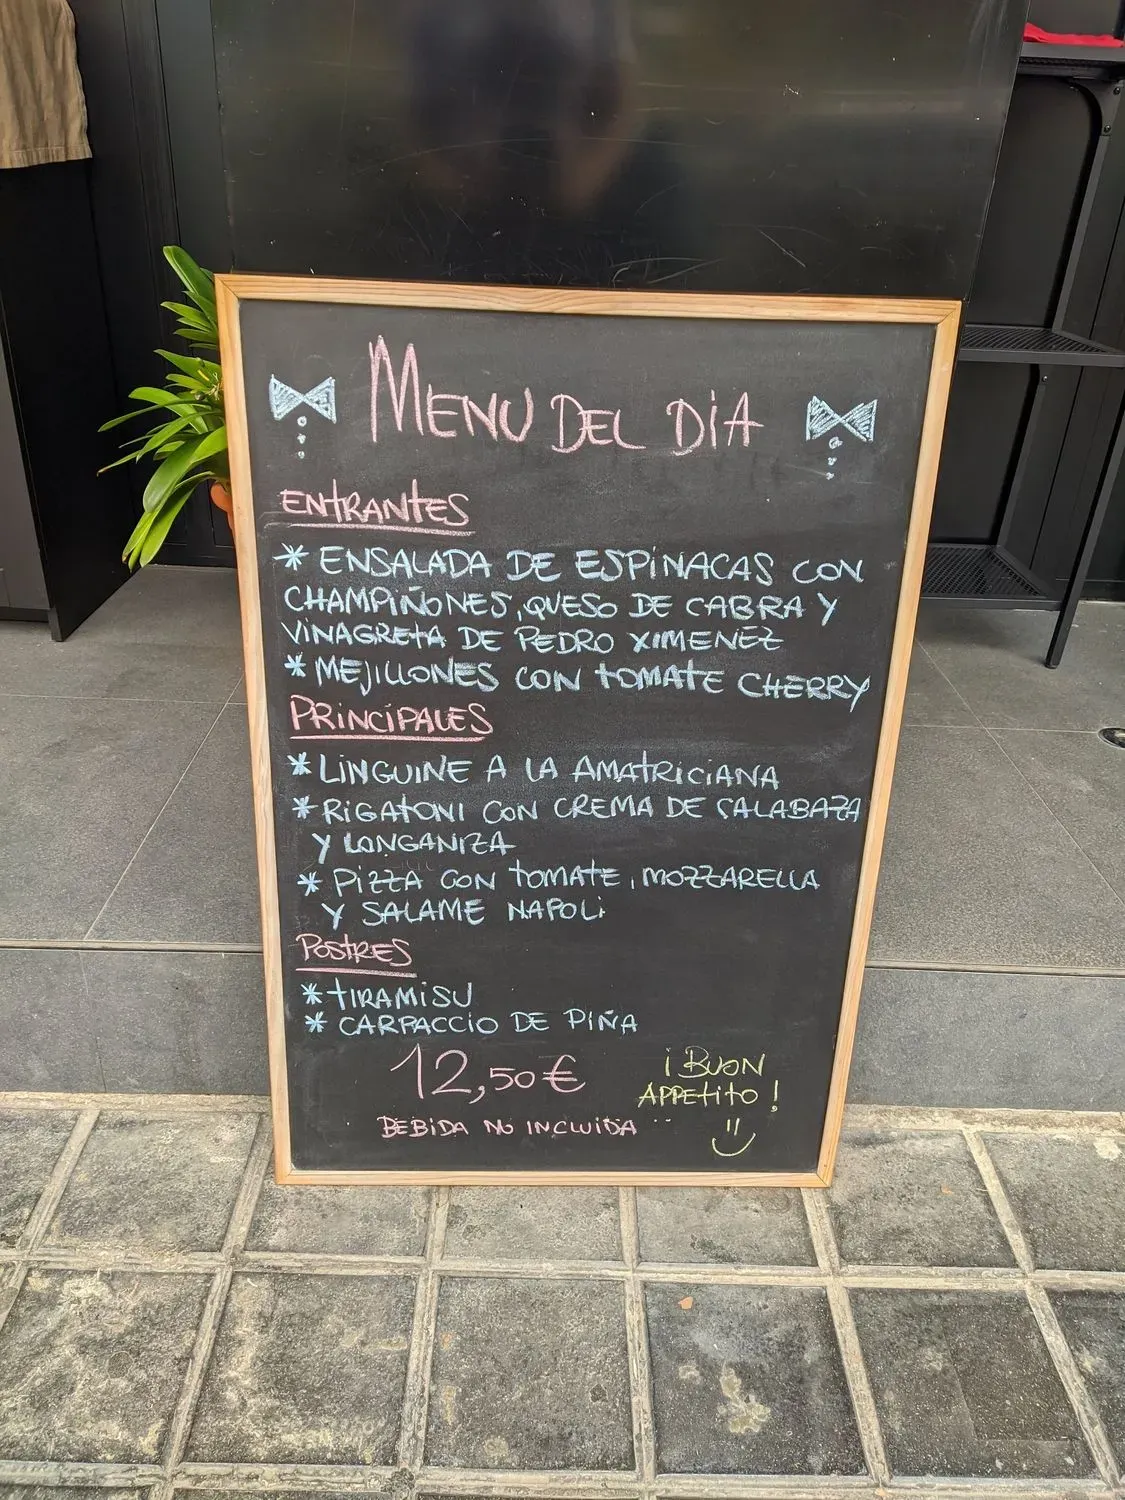 MENU DEL DIA
ENTRANTES
* ENSALADA DE ESPINACAS CON
CHAMPIÑONES, QUESO DE CABRA Y
VINAGRETA DE PEDRO XIMENEZ
* MEJILLONES CON TOMATE CHERRY
PRINCIPALES
* LINGUINE A LA AMATRICIANA
* RIGATONI CON CREMA DE CALABAZA
Y LONGANIZA
* PIZZA CON TOMATE, MOZZARELLA
Y SALAME NAPOLI
POSTRES
* TIRAMISU
* CARPACCIO DE PIÑA
12,50€
BEBIDA NO INCLUIDA
¡BUON
APPETITO!